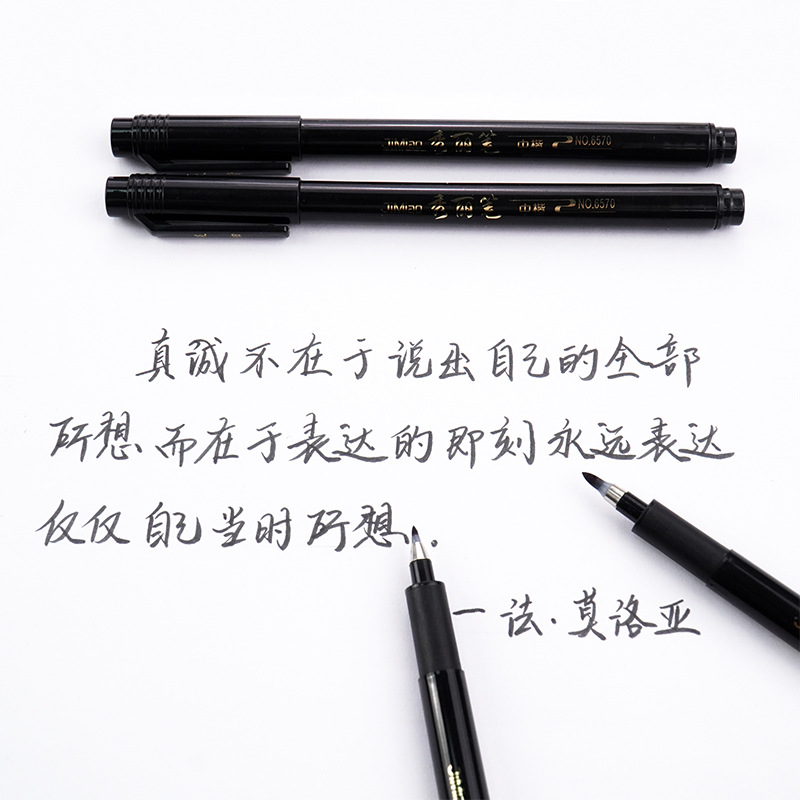 JiMiao 秀丽笔 中楷 NO.6570
JiMiao 秀丽笔 中楷 NO.6570
真诚不在于说出自己的全部
所想,而在于表达的即刻永远表达
仅仅自己当时所想..
一法·莫洛亚